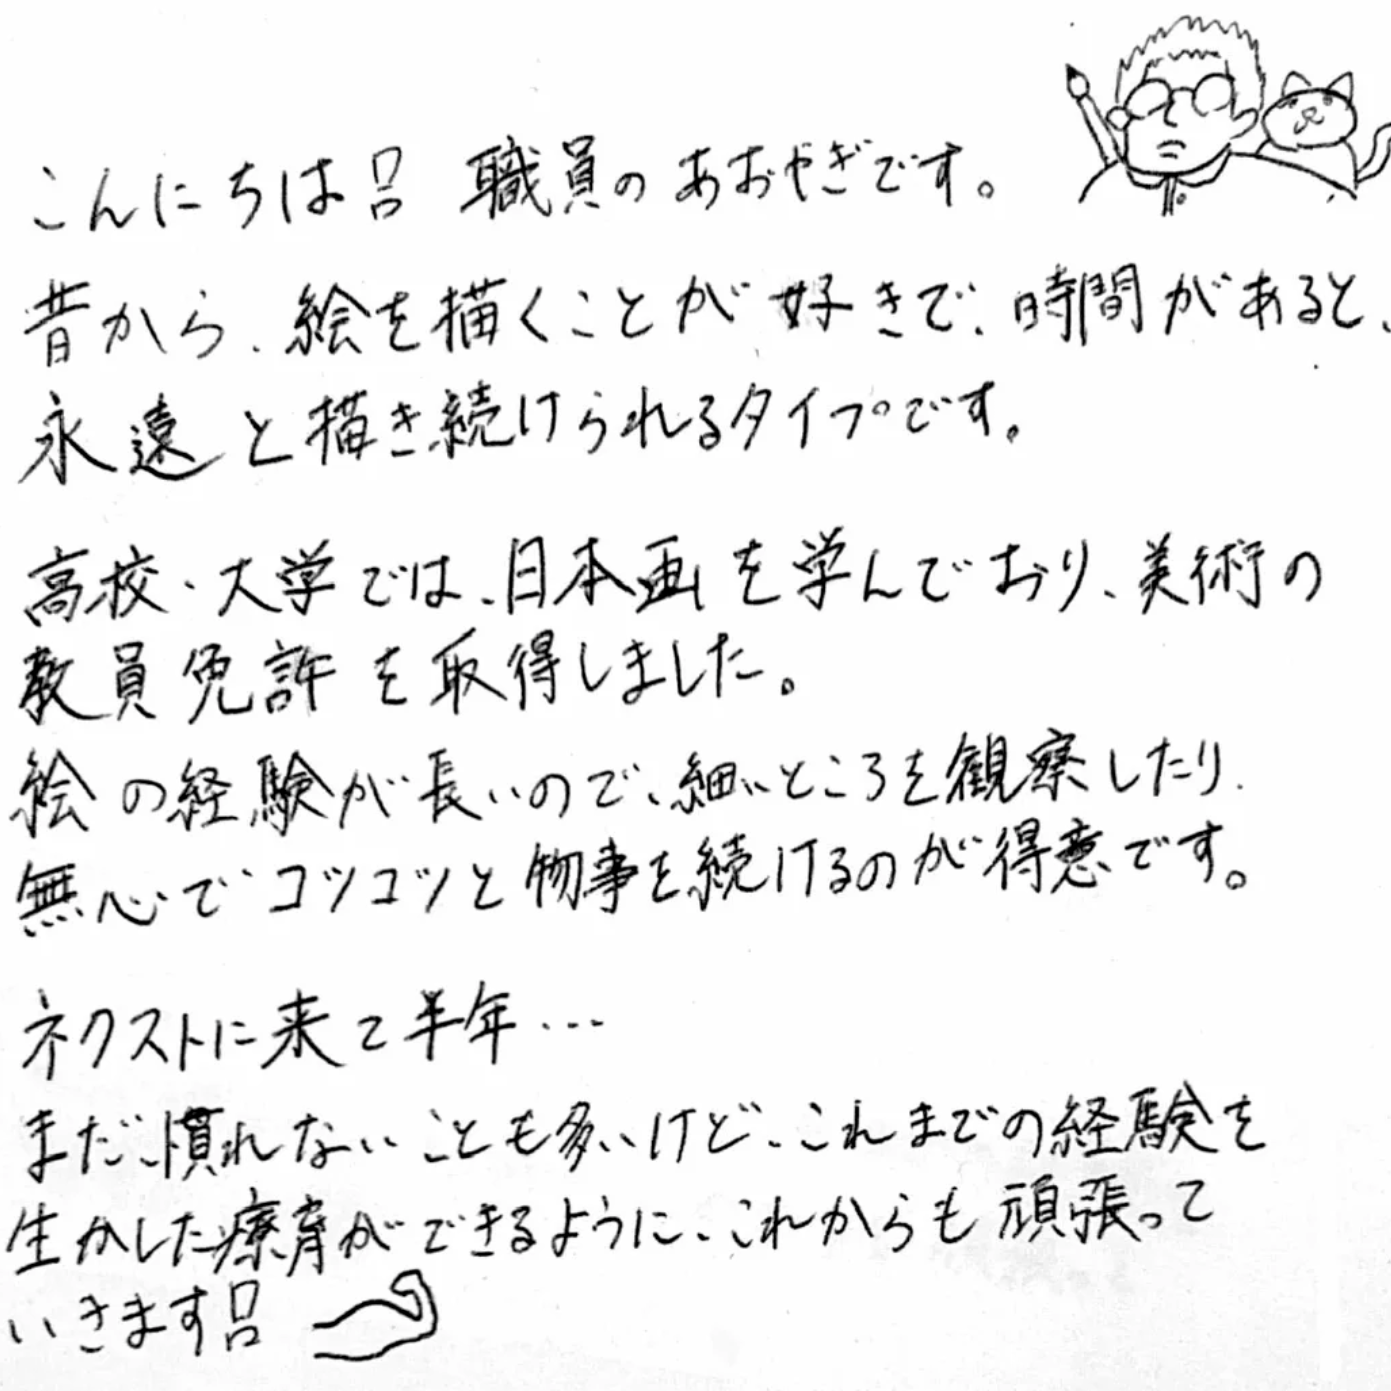 こんにちは！ 職員のあおやぎです。
昔から、絵を描くことが好きで、時間があると、
永遠と描き続けられるタイプです。
高校・大学では、日本画を学んでおり、美術の
教員免許を取得しました。
絵の経験が長いので、細いところを観察したり、
無心でコツコツと物事を続けるのが得意です。
ネクストに来て半年…
まだ、慣れないことも多いけど、これまでの経験を
生かした療育ができるように、これからも頑張って
いきます！